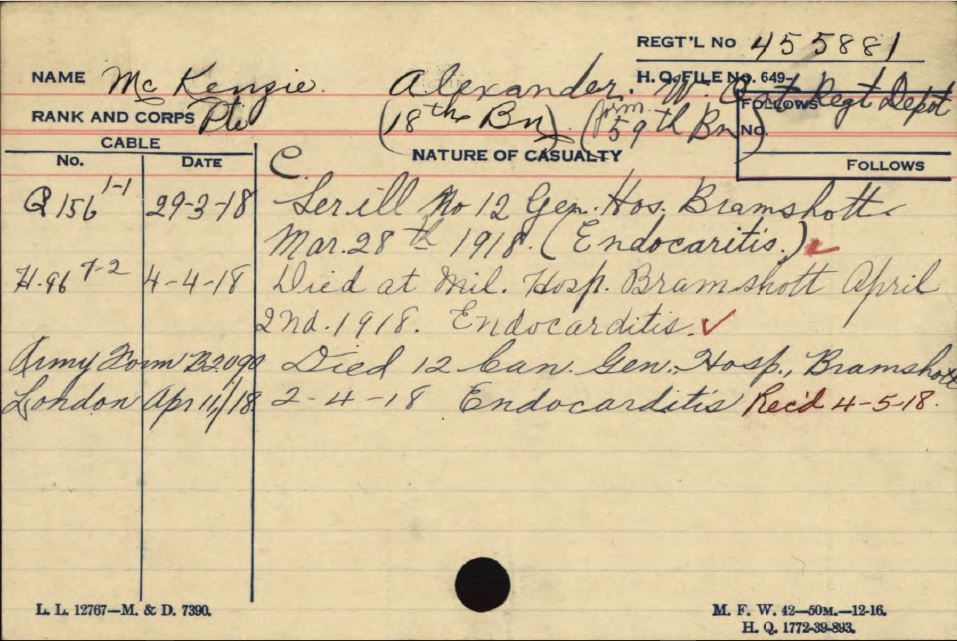 REGT'L No 455881
NAME McKenzie. Alexander. H.Q. FILE No. 649-
W. Ont Regt Depot
FOLLOWS
RANK AND CORPS Pte (18th Bn) (form 59th Bn) No.
CABLE
No. DATE
C. NATURE OF CASUALTY
FOLLOWS
Q 156 1-1 29-3-18 Ser ill No 12 Gen. Hos. Bramshott
Mar. 28th 1918. (Endocaritis.) ✓
H.96 7-2 4-4-18 Died at Mil. Hosp. Bramshott April
2nd. 1918. Endocarditis. ✓
Army Form B2090 Died 12 Can. Gen. Hosp., Bramshott
London Apr 11/18. 2-4-18 Endocarditis Rec'd 4-5-18.
L. L. 12767—M. & D. 7390.
M. F. W. 42—50M.—12-16.
H. Q. 1772-39-893.